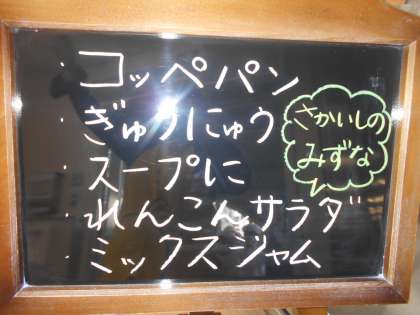 ・コッペパン
・ぎゅうにゅう
・スープに
・れんこんサラダ
・ミックスジャム
さかいしの
みずな